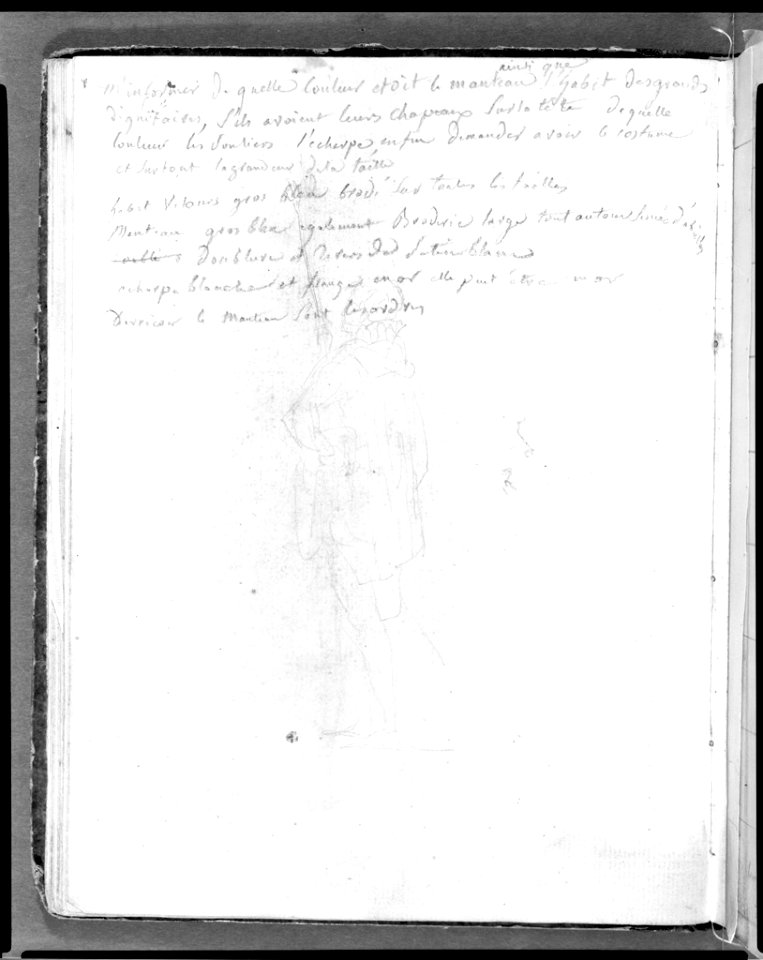 ainsi que
m'informer de quelle couleur etoit le manteau l'habit des grands
dignitaires, s'ils avoient leurs chapeaux sur la tete de quelle
couleur les souliers l'echarpe, enfin demander a voir le costume
et surtout la grandeur de la taille
habit velours gros bleu brodé sur toutes les tailles
Manteau gros bleu egalement Broderie large tout autour semé d'abeilles
Doublure et revers de satin blanc
echarpe blanche et frange en or elle peut être en or
Dessiner le manteau sont les ordres